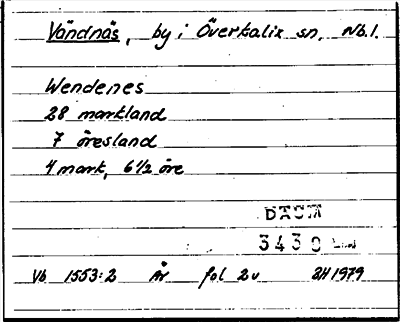 Vändnäs, by i Överkalix sn, Nb.l.
Wendenes
28 markland
7 öresland
4 mark, 6 1/2 öre
3430
Vb 1553:2 År fol 2v 2H 1979